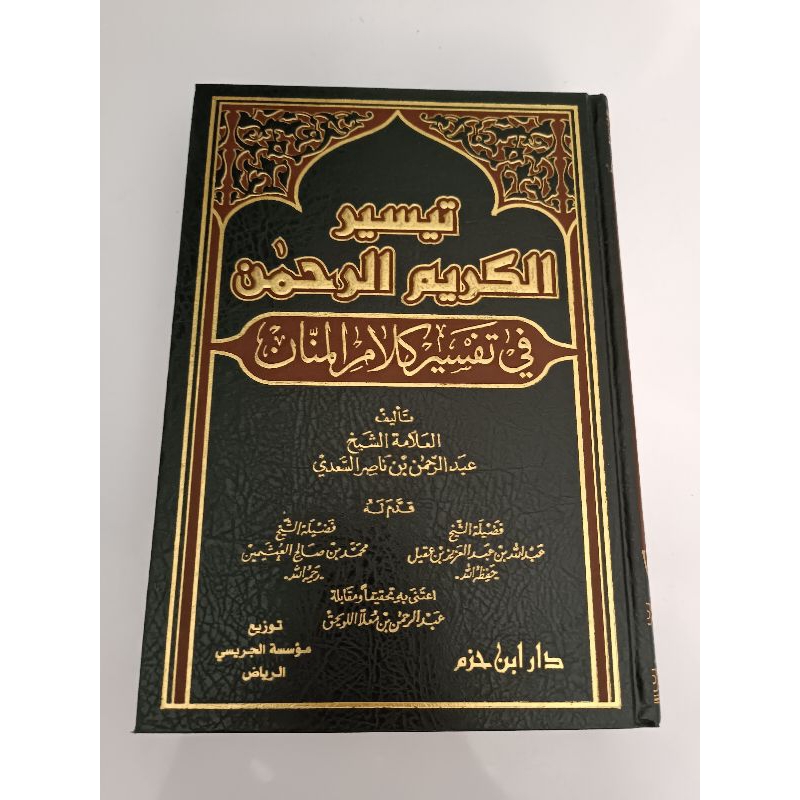 تيسير
الكريم الرحمٰن
في تفسير كلام المنّان
تأليف
العلامة الشيخ
عبد الرحمٰن بن ناصر السّعدي
قدّم له
فضيلة الشيخ
عبد الله بن عبد العزيز بن عقيل
- حفظه الله -
فضيلة الشيخ
محمّد بن صالح العثيمين
- رحمه الله -
اعتنى به تحقيقاً ومقابلة
عبد الرحمٰن بن معلا اللويحق
دار ابن حزم
توزيع
مؤسسة الجريسي
الرياض